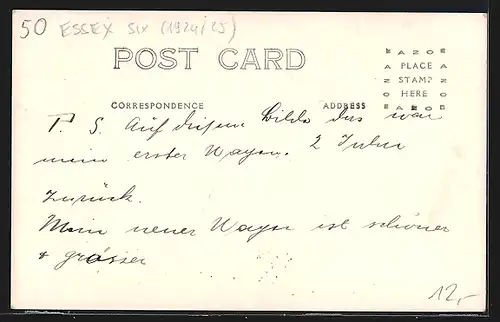 50 ESSEX SIX (1924/25)
POST CARD
AZOE
PLACE
STAMP
HERE
CORRESPONDENCE ADDRESS
P. S. Auf diesem Bilde das war
mein erster Wagen. 2 Jahre
zurück.
Mein neuer Wagen ist schöner
+ grösser
12,-